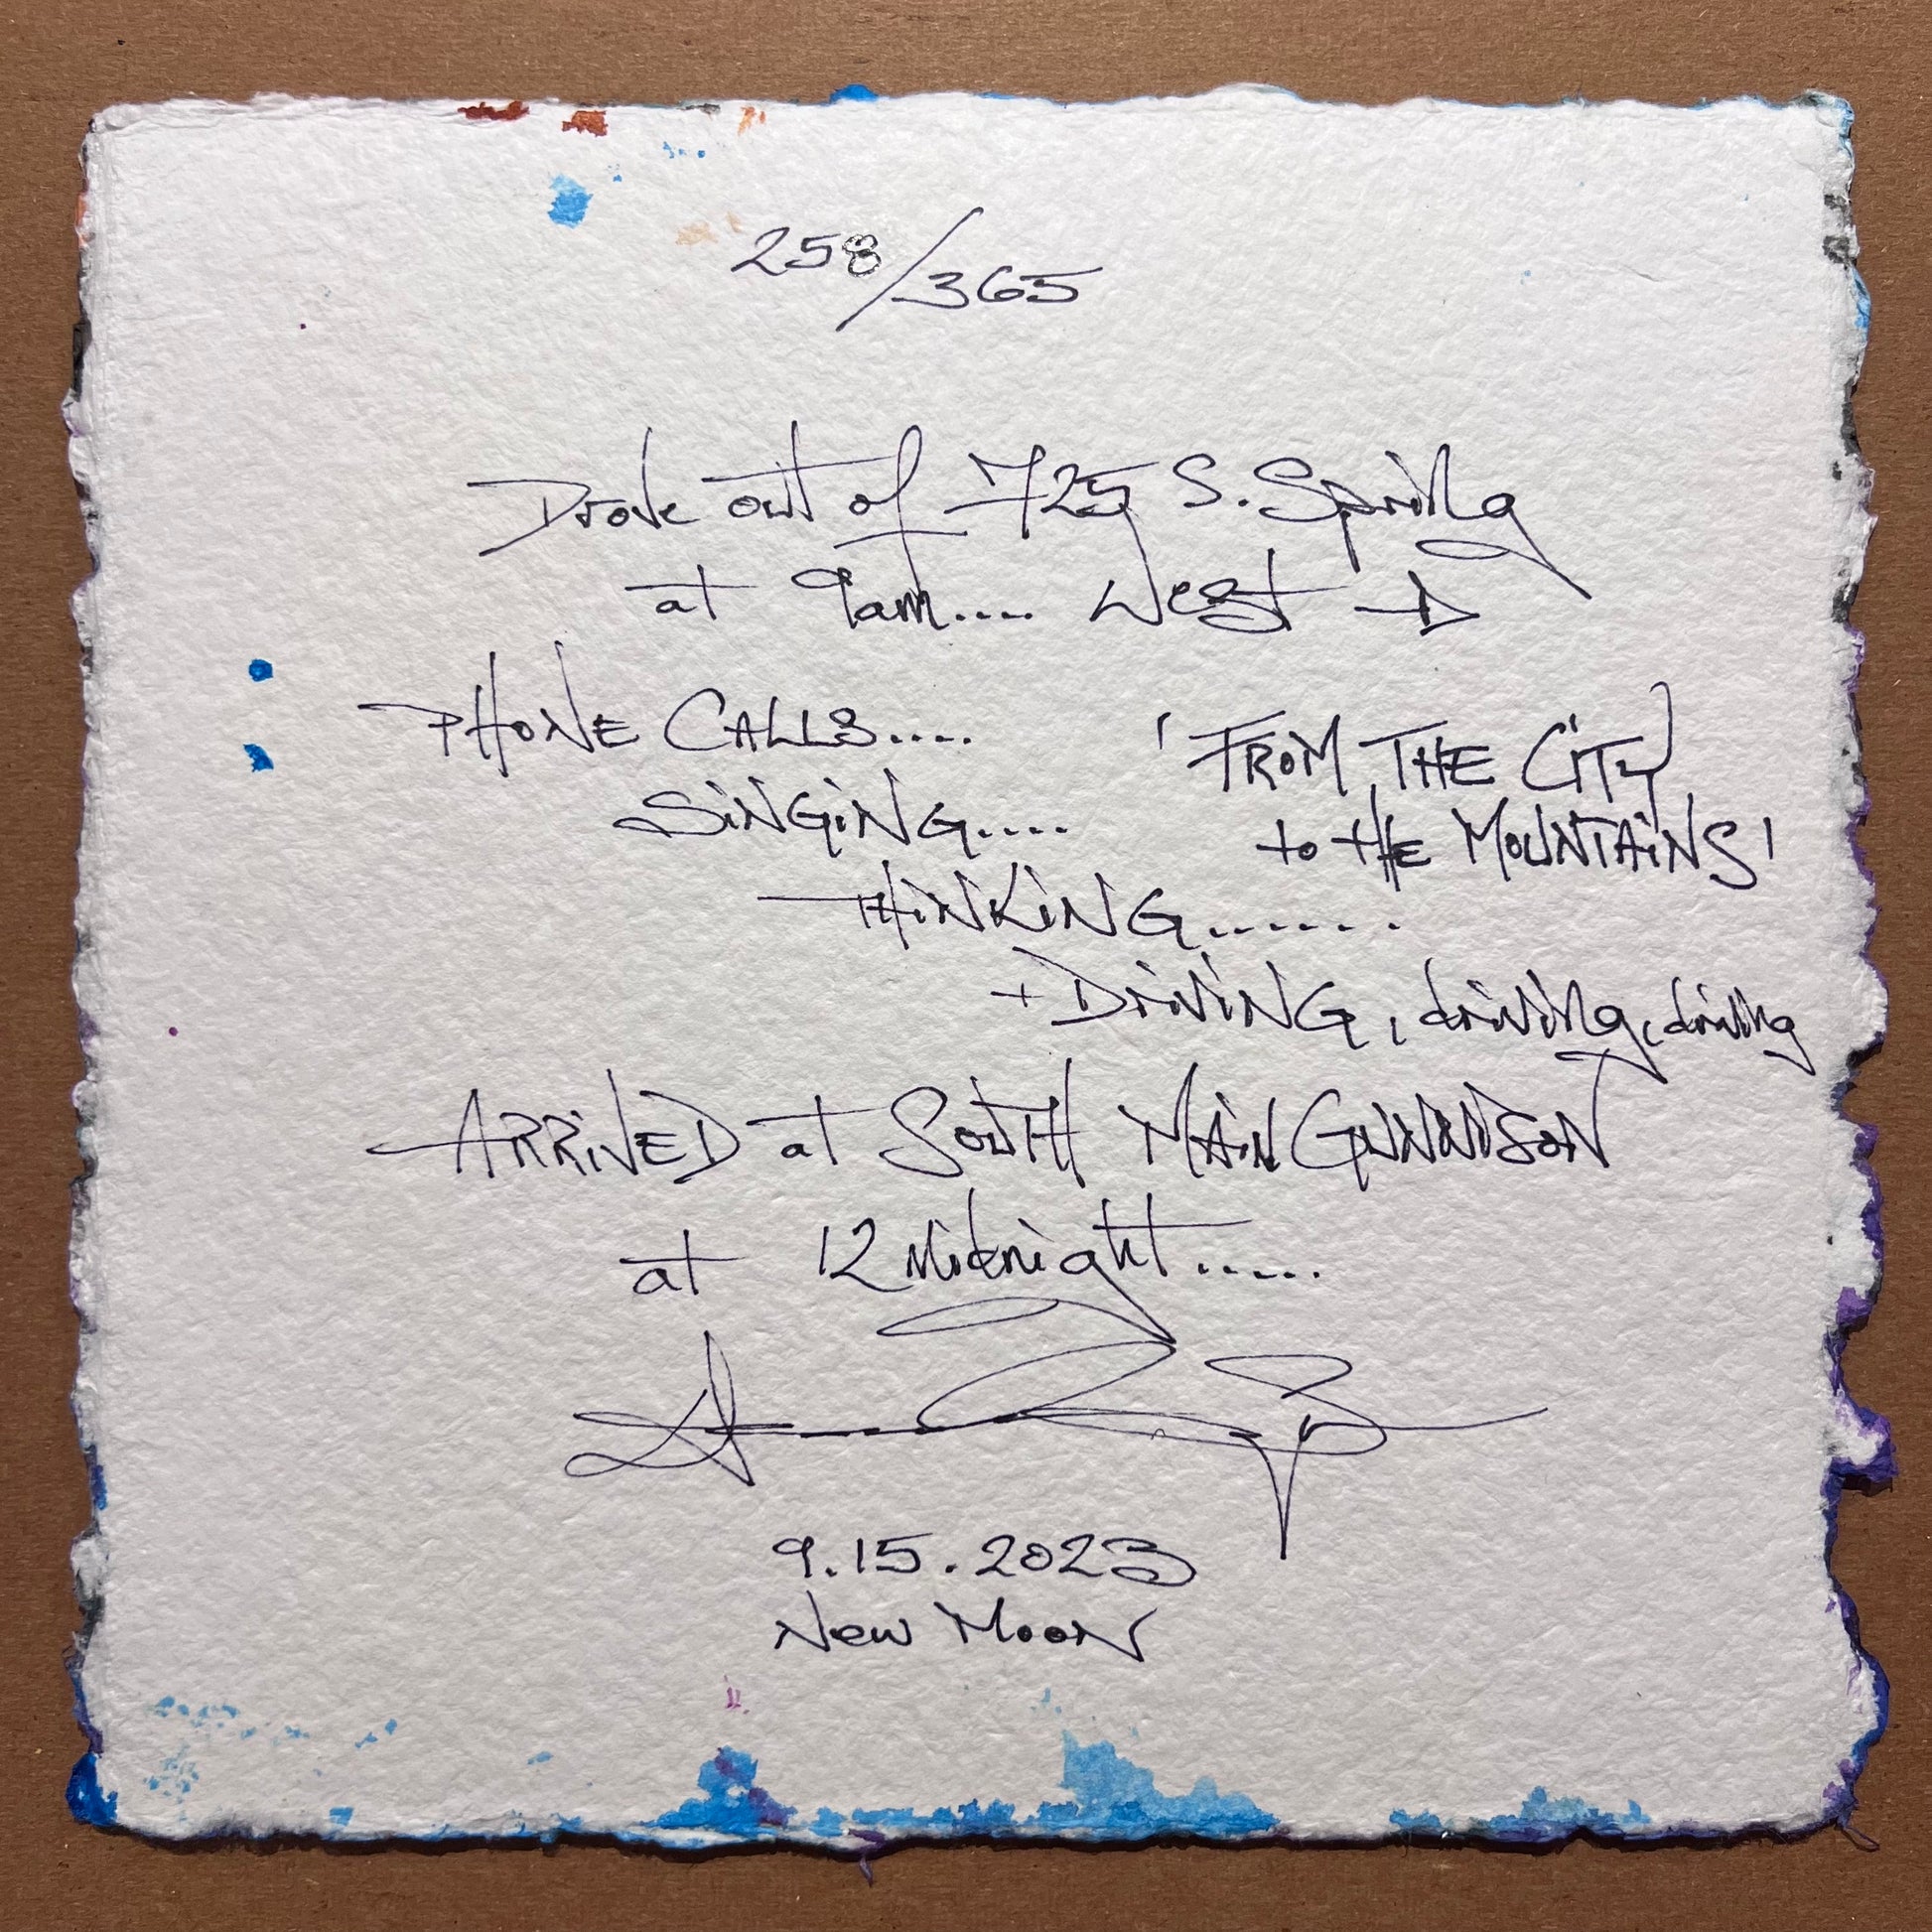 258/365
Drove out of 725 S. Spring
at 9am.... West →
PHONE CALLS....
SINGING....
'FROM THE CITY
to tHE MOUNTAINS'
THINKING.......
+ DRIVING, driving, driving
ARRIVED at SOUTH MAIN GUNNISON
at 12 Midnight.....
9.15.2023
New Moon